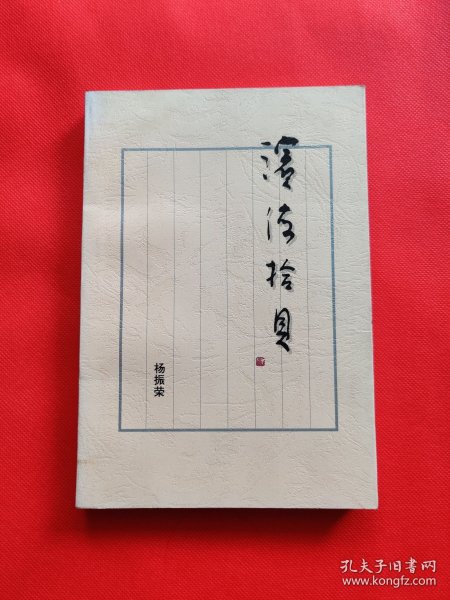 滨海拾贝
杨振荣
孔夫子旧书网
www.kongfz.com